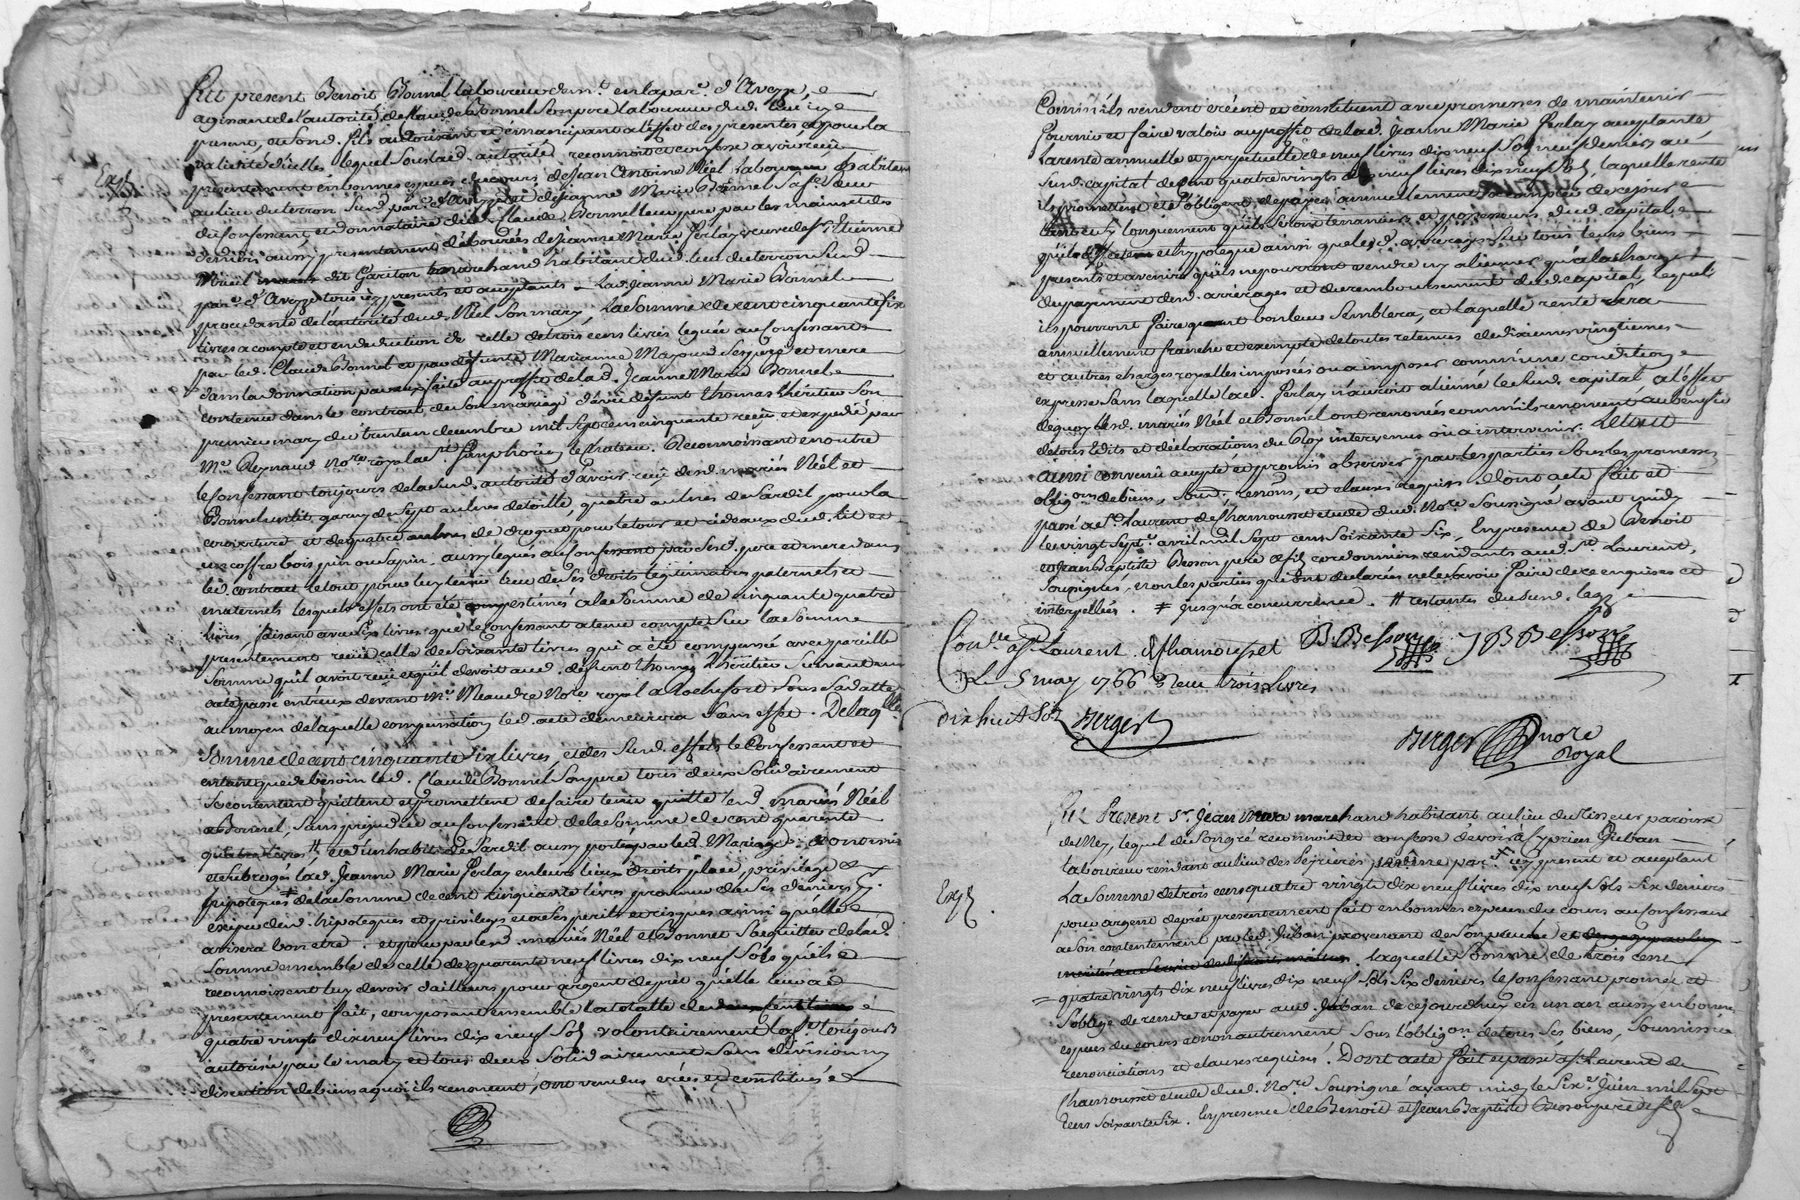 Fut present Benoit Bonnel laboureur demt. en la parse. d'Aveyze
agissant de l'autorité de Claude Bonnel son pere laboureur dud. lieu icy
present, et sond. fils autorisant et émancipant a l'effet des presentes et pour la
validité d'icelles lequel sous lad. autorité reconnoit et confesse avoir reçû
Expé
presentement en bonnes especes du cours de Jean Antoine Néel laboureur habitant
au lieu du terron susd. parse. d'Aveyze et de Jeanne Marie Bonnel sa fe. sœur
du confessant, et donnataire dud. Claude Bonnel leur pere par les mains et des
deniers aussy presentement déboursés de Jeanne Marie Ferlay veuve de Sr. Etienne
dit Gariton marchand habitant dud. lieu du terron susd.
parse. d'Aveyze tous icy presents et acceptants lad. Jeanne Marie Bonnel
procedante de l'autorité dud. Néel son mary, la somme de cent cinquante six
livres a compte et en deduction de celle de trois cens livres leguée au confessant
par led. Claude Bonnel et par défunte Marianne Mazoud ses pere et mere
dans la donnation par eux faite au proffit de lad. Jeanne Marie Bonnel
contenue dans le contrat de son mariage d'avec défunt Thomas Théritier son
premier mary du trentun decembre mil sept cens cinquante reçû et expedié par
Me. Reynaud nore. royal a St. Simphorien le chateau. Reconnoissant en outre
le confessant toujours de la susd. autorité d'avoir reçû desd. mariés Néel et
Bonnel un lit garny de sept aulnes de toille, quatre aulnes de sardil pour la
couverture et de quatre aulnes de droguet pour le tour et rideaux dud. lit et
un coffre bois pin ou sapin aussy legués au confessant par sesd. pere et mere dans
led. contrat le tout pour luy tenir lieu de ses droits legitimaires paternels et
maternels lesquels effets ont été estimés a la somme de cinquante quatre
livres faisant avec six livres que le confessant a tenu compte sur la somme
presentement reçûe celle de soixante livres qui a été compensé avec pareille
somme qu'il avoit reçûe et qu'il devoit aud. defunt Thomas Théritier suivant un
acte passé entr'eux devant Me. Meaudre nore. royal a Rochefort sous sa datte
au moyen de laquelle compensation led. acte demeurera sans effet. De laqlle
somme de cent cinquante six livres, et des susd. effets le confessant et
en tant que de besoin led. Claude Bonnel son pere tous deux solidairement
se contentent quittent et promettent de faire tenir quitte lesd. mariés Néel
et Bonnel, sans prejudice au confessant de la somme de cent quarente
quatre livres # et d'un habit de sardil aussy porté par led. Mariage; et ont mis
et subrogés lad. Jeanne Marie Ferlay en leurs lieu, droits, place, privilege et
hipoteques ≠ de la somme de cent cinquante livres provenue de ses deniers
exiger desd. hipoteques et privileges et a ses perils et risques ainsi qu'elle
avisera bon etre. et pour par lesd. mariés Néel et Bonnel s'acquitter de lad.
somme ensemble de celle de quarente neuf livres dix neuf sols qu'ils
reconnoissent luy devoir d'ailleurs pour argent de prét qu'elle leur a
presentement fait, composant ensemble la totalle de
quatre vingts dixneuf livres dix neuf sols volontairement lad. fe. toujours
autorisée par le mary et tous deux solidairement sans division ny
discution de biens a quoi ils renoncent, ont vendus créés et constitués
Comm'ils vendent créént et constituent avec promesses de maintenir
fournir et faire valoir au proffit de lad. Jeanne Marie Ferlay acceptante
la rente annuelle et perpetuelle de neuf livres dix neuf sols neuf deniers au
susd. capital de cent quatre vingts dix neuf livres dix neuf sols, laquelle rente
ils promettent et s'obligent de payer annuellement a compter de ce jour
longuement qu'ils seront tenanciers et possesseurs dud. capital
qu'ils et hypoteque ainsi que lesd. arrérages sur tous leurs biens
presents et avenir qu'ils ne pourront vendre ny aliener qu'a la charge
du payement desd. arrérages et du remboursement dud. capital, lequel
ils pourront faire quant bon leur semblera, et laquelle rente sera
annuellement franche et exempte de toutes retenues de dixiemes vingtiemes
et autres charges royalles imposées ou a imposer comm'une condition
expresse sans laquelle lad. Ferlay n'auroit aliené le susd. capital a l'effet
de quoy lesd. mariés Néel et Bonnel ont renoncés comm'ils renoncent au benefice
de tous Edits et déclarations du Roy intervenus ou a intervenir. Le tout
ainsi convenû accepté et promis observer par les parties sous les promesses
obligons. de biens, soud. renons, et clauses requises. Dont acte fait et
passé a St. Laurent de Chamousset etude dud. nore. soussigné avant midy
le vingt sept. avril mil sept cens soixante six, En presence de Benoit
et Jean Baptiste Besson pere et fils cordonniers residants aud. St. Laurent,
soussignés, non les parties qui ont declarées ne le sçavoir faire de ce enquises et
interpellées. ≠ jusqu'a concurrence. # restantes du susd. legs
Conlle. a St Laurent de Chamousset B. Besson J B Besson
le 5 may 1766 Reçu trois livres
dix huit sols Berger
Berger nore
Royal
Fut Present Sr. Jean marchand habitant au lieu de Tisseur paroisse
de Meys, lequel de son gré reconnoit et confesse devoir a Cyprien Juban
laboureur residant au lieu des Peyrieres même parse. icy present et acceptant
Expé
La somme de trois cens quatre vingts dix neuf livres dix neuf sols six deniers
pour argent de prét presentement fait en bonnes especes du cours au confessant
a son contentement par led. Juban provenant de son
laquelle somme de trois cent
quatre vingts dix neuf livres dix neuf sols six deniers le confessant promet et
s'oblige de rendre et payer aud. Juban de ce jourd'huy en un an aussy en bonnes
especes du cours et non autrement sous l'obligon de tous ses biens, soumissions
renonciations et clauses requises. Dont acte fait et passé a St. Laurent de
Chamousset etude dud. nore. soussigné avant midy le six Juin mil sept
cens soixante six. En presence de Benoit et Jean Baptiste Besson pere et fils